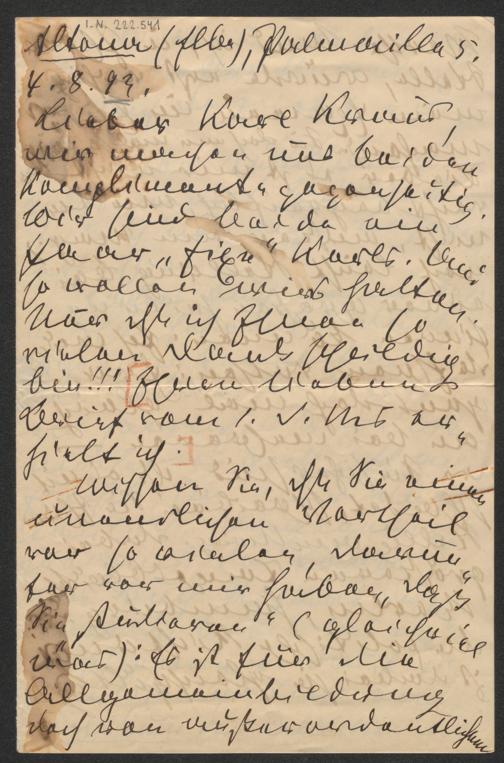 I.N. 222.541
Altona (Elbe), Palmaille 5.
4. 8. 93.
Lieber Karl Kraus,
wir machen uns beiden
Komplimente gegenseitig.
Wir sind beide ein
Paar „fixe“ Kerls. Und
so wollen wirs halten.
Nur daß ich Ihnen so
vielen Dank schuldig
bin!!! Ihren lieben
Brief vom 1. d. Mts er-
hielt ich.
Wissen Sie, daß Sie einen
unendlichen Vortheil
vor so vielen, darun-
ter vor mir haben, daß
Sie studieren“ (gleichviel
was): Es ist für die
Allgemeinbildung
doch von außerordentlichem